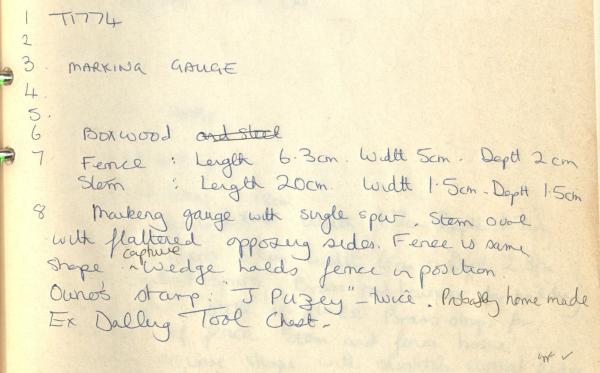 1 T1774
2
3. MARKING GAUGE
4.
5.
6 BOXWOOD and steel
7 Fence : Length 6.3cm. Width 5cm. Depth 2cm
Stem : Length 20cm. Width 1.5cm. Depth 1.5cm
8 Marking gauge with single spur. Stem oval
with flattered opposing sides. Fence is same
shape. ^captive Wedge holds fence in position.
Owner's stamp: "J Puzey" - twice. Probably home made
Ex Dalling Tool Chest.